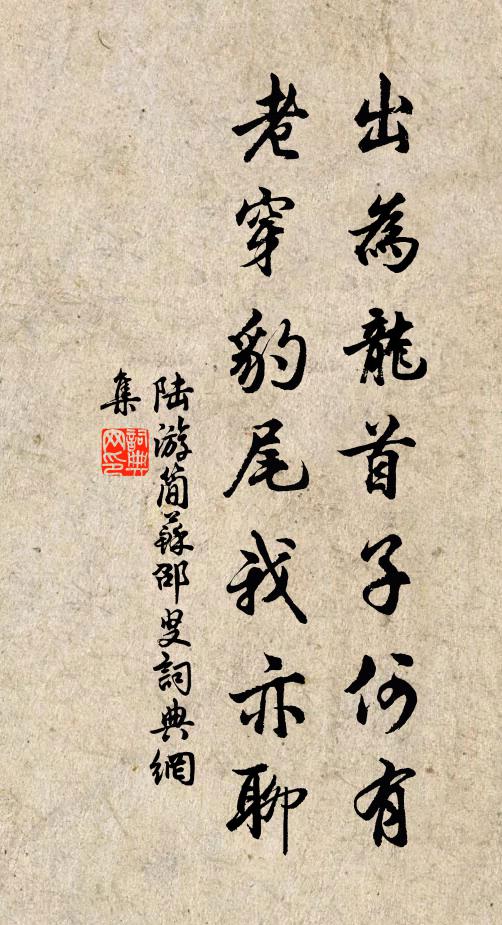 出為龍首子何有
老穿豹尾我亦聊
陆游简蘇邵叟詞典網
集
詞典网印